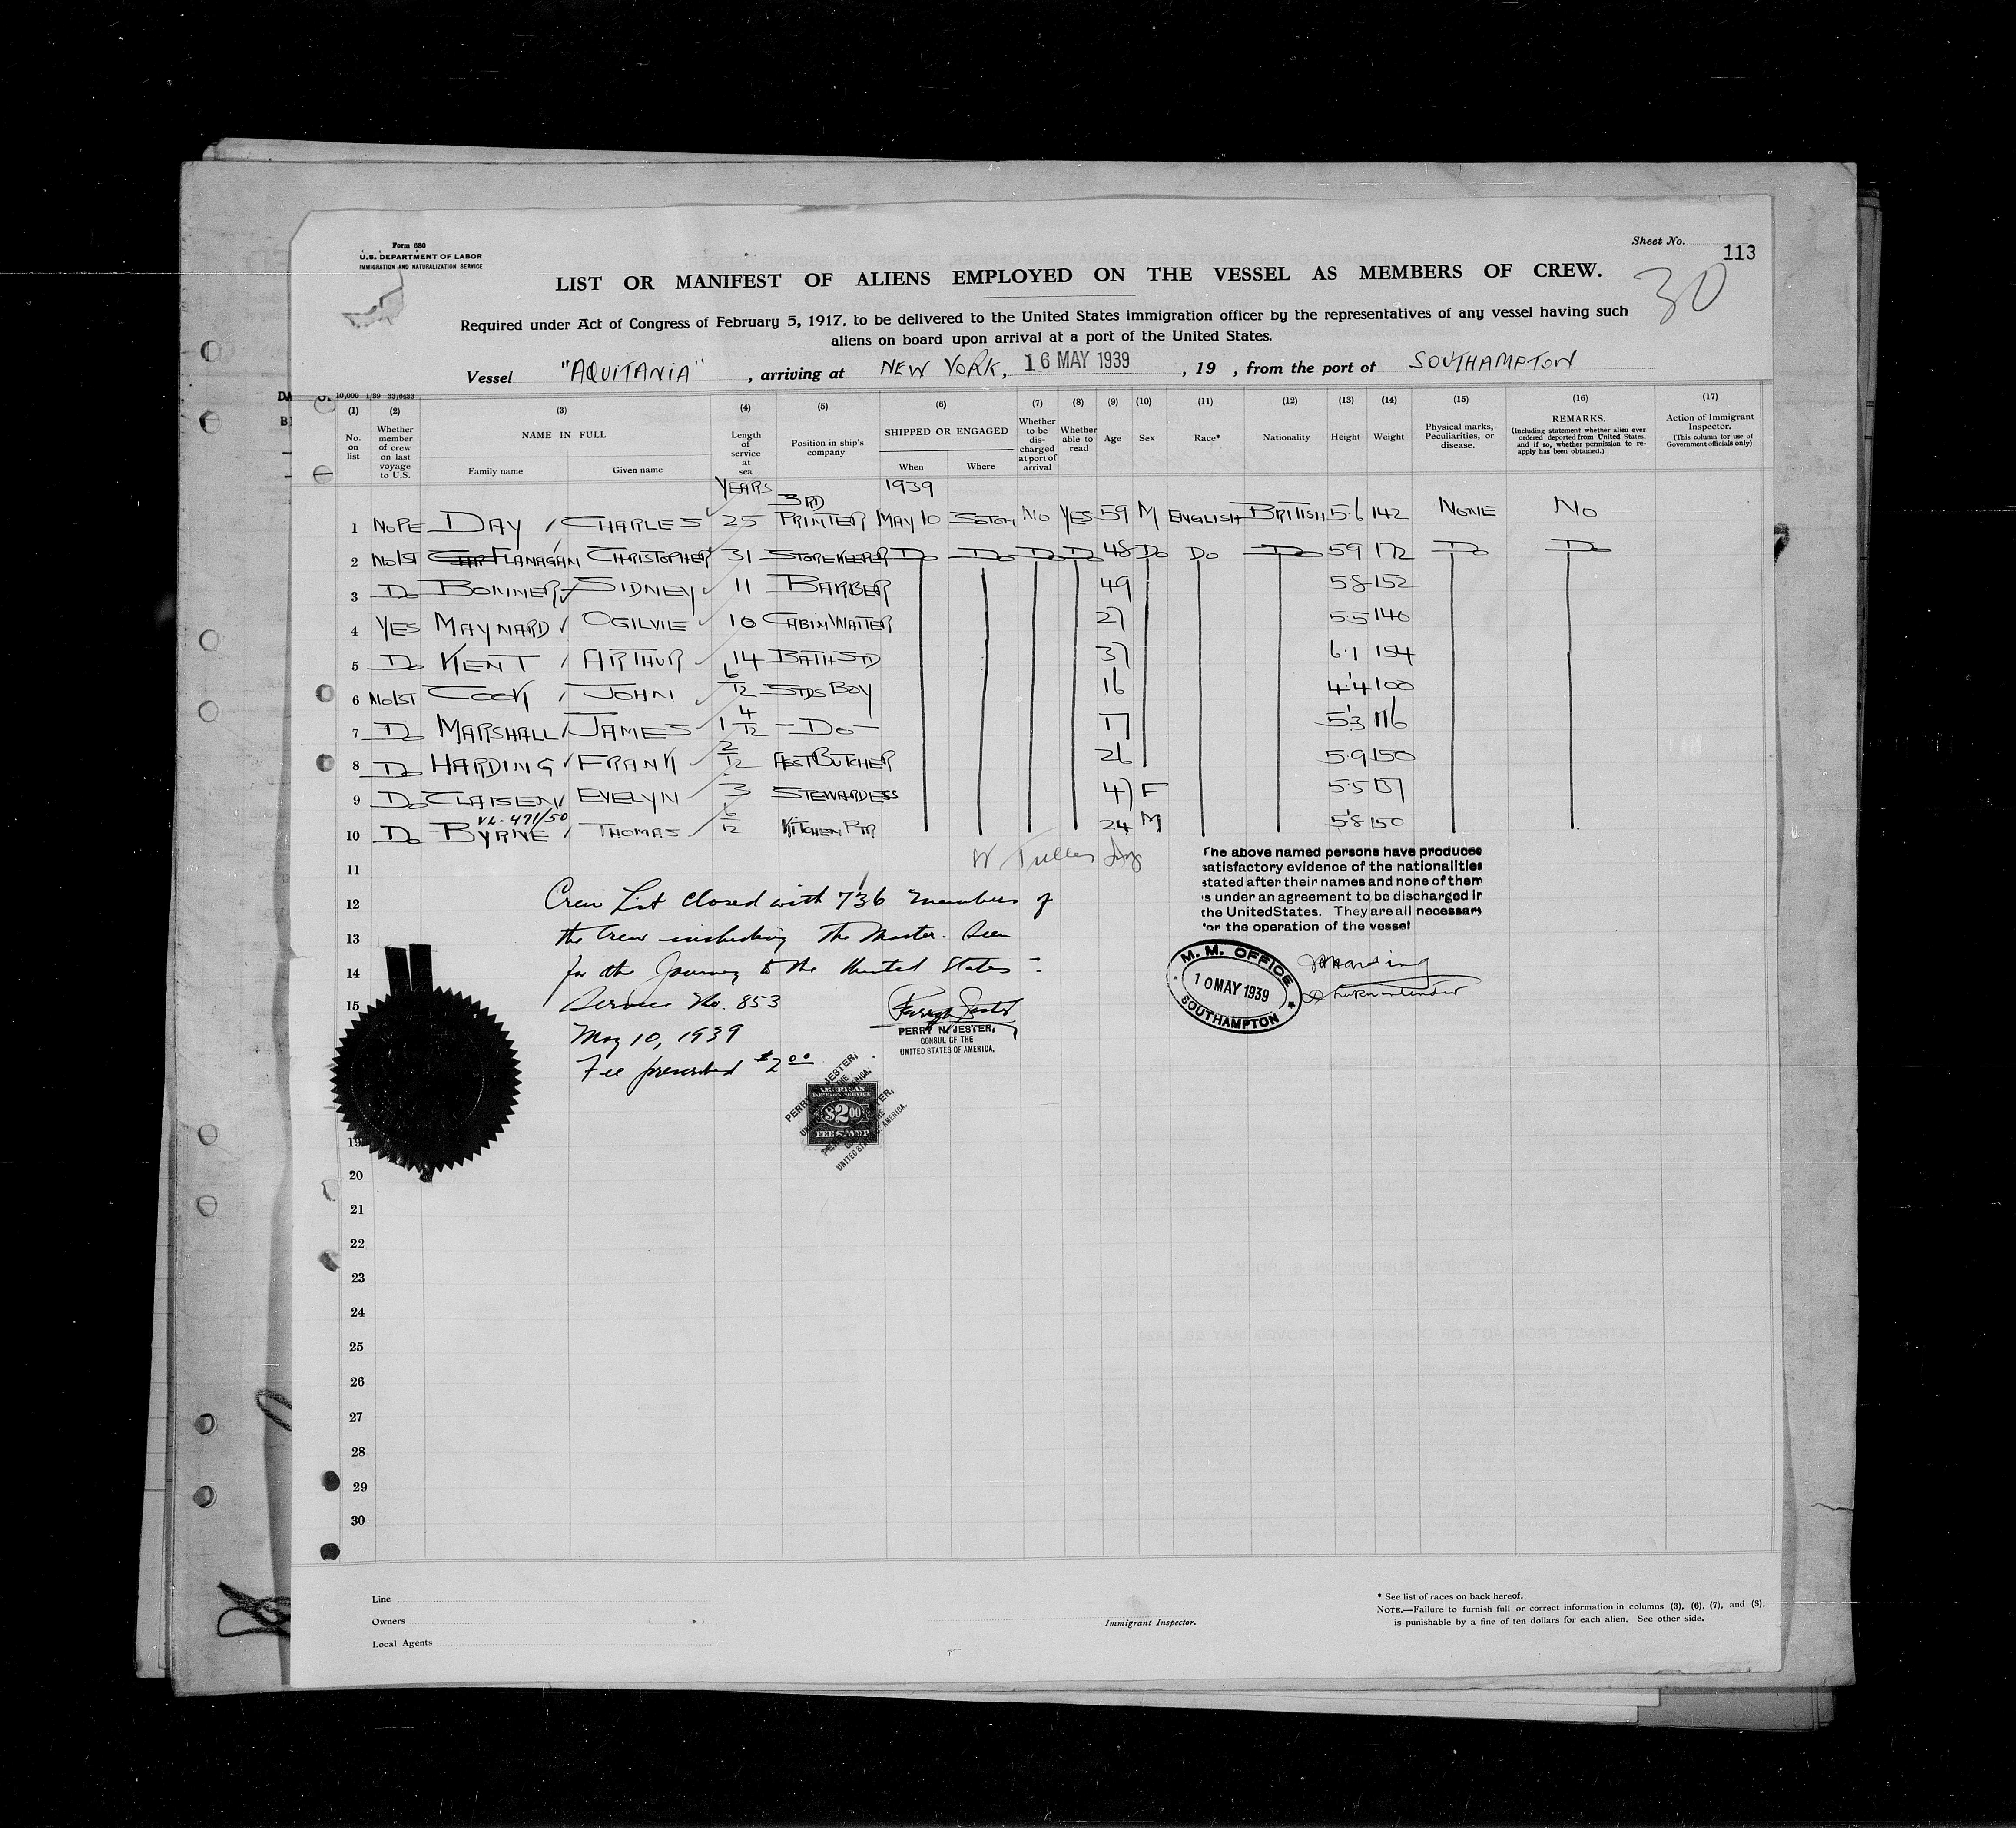 Form 680
U.S. DEPARTMENT OF LABOR
IMMIGRATION AND NATURALIZATION SERVICE
Sheet No.
113
30
LIST OR MANIFEST OF ALIENS EMPLOYED ON THE VESSEL AS MEMBERS OF CREW.
Required under Act of Congress of February 5, 1917, to be delivered to the United States immigration officer by the representatives of any vessel having such
aliens on board upon arrival at a port of the United States.
Vessel "AQUITANIA", arriving at NEW YORK, 16 MAY 1939, 19 , from the port of SOUTHAMPTON
10,000 1/39
(1) (2) (3) (4) (5) (6) (7) (8) (9) (10) (11) (12) (13) (14) (15) (16) (17)
No. on list
Whether member of crew on last voyage to U.S.
NAME IN FULL
Family name Given name
Length of service at sea
Position in ship's company
SHIPPED OR ENGAGED
When Where
Whether to be discharged at port of arrival
Whether able to read
Age
Sex
Race*
Nationality
Height
Weight
Physical marks, Peculiarities, or disease.
REMARKS.
(Including statement whether alien ever ordered deported from United States, and if so, whether permission to reapply has been obtained.)
Action of Immigrant Inspector.
(This column for use of Government officials only)
YEARS 1939
1 DAY CHARLES 25 3RD PRINTER MAY 10 SOTON NO YES 59 M ENGLISH BRITISH 5.6 142 NONE NO
2 No1ST FLANAGAN CHRISTOPHER 31 STOREKEEPER Do Do Do Do 48 Do Do Do 59 172 Do Do
3 Do BONNER SIDNEY 11 BARBER 49 5.8 152
4 YES MAYNARD OGILVIE 10 CABIN WAITER 27 5.5 140
5 Do KENT ARTHUR 14 BATH STD 37 6.1 154
6 No1ST COOK JOHN 6/12 STDS BOY 16 4.4 100
7 Do MARSHALL JAMES 1 4/12 -Do- 17 5.3 116
8 Do HARDING FRANK 2/12 ASST BUTCHER 26 5.9 150
9 Do EVELYN 3 STEWARDESS 47 F 5.5
VL-471/50
10 Do BYRNE THOMAS 6/12 KITCHEN PTR 24 M 5.8 150
11
12
13
14
15
19
20
21
22
23
24
25
26
27
28
29
30
Crew List closed with 736 members of
the Crew including the Master. Seen
for the Journey to the United States -.
Service No. 853
May 10, 1939
Fee prescribed $2.00
PERRY N. JESTER,
CONSUL OF THE
UNITED STATES OF AMERICA.
AMERICAN
FOREIGN SERVICE
$2.00
FEE STAMP
The above named persons have produced
satisfactory evidence of the nationalities
stated after their names and none of them
is under an agreement to be discharged in
the United States. They are all necessary
for the operation of the vessel
M. M. OFFICE
10 MAY 1939
SOUTHAMPTON
Harding
Superintendent
Line
Owners
Local Agents
Immigrant Inspector.
* See list of races on back hereof.
NOTE.—Failure to furnish full or correct information in columns (3), (6), (7), and (8),
is punishable by a fine of ten dollars for each alien. See other side.